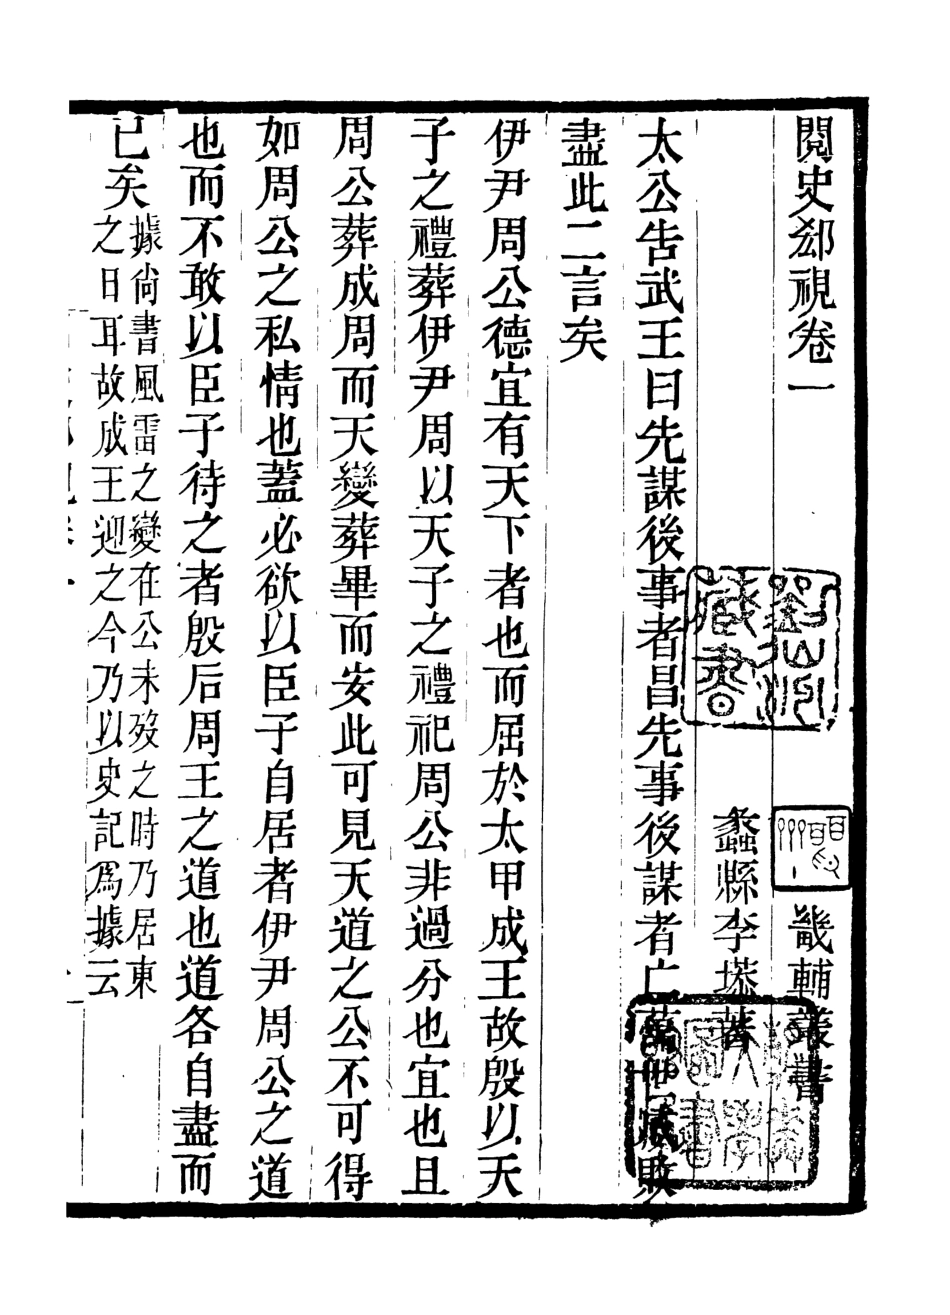 閱史郄視卷一
畿輔叢書
蠡縣李塨著
太公告武王曰先謀後事者昌先事後謀者亡萬世成敗
盡此二言矣
伊尹周公德宜有天下者也而屈於太甲成王故殷以天
子之禮葬伊尹周以天子之禮祀周公非過分也宜也且
周公葬成周而天變葬畢而安此可見天道之公不可得
如周公之私情也蓋必欲以臣子自居者伊尹周公之道
也而不敢以臣子待之者殷后周王之道也道各自盡而
已矣
據尚書風雷之變在公未歿之時乃居東
之日耳故成王迎之今乃以史記爲據云
藏書